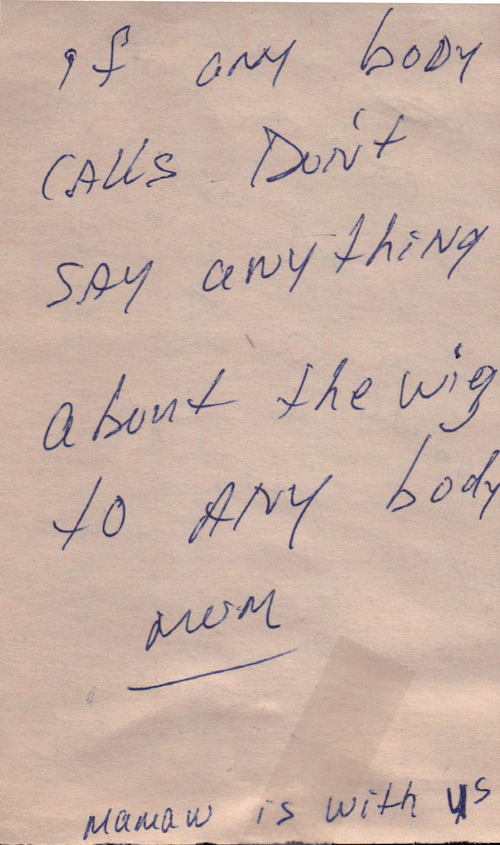 if any body
CALLS DON't
SAY anything
about the wig
to ANY body
MOM
Mamaw is with us